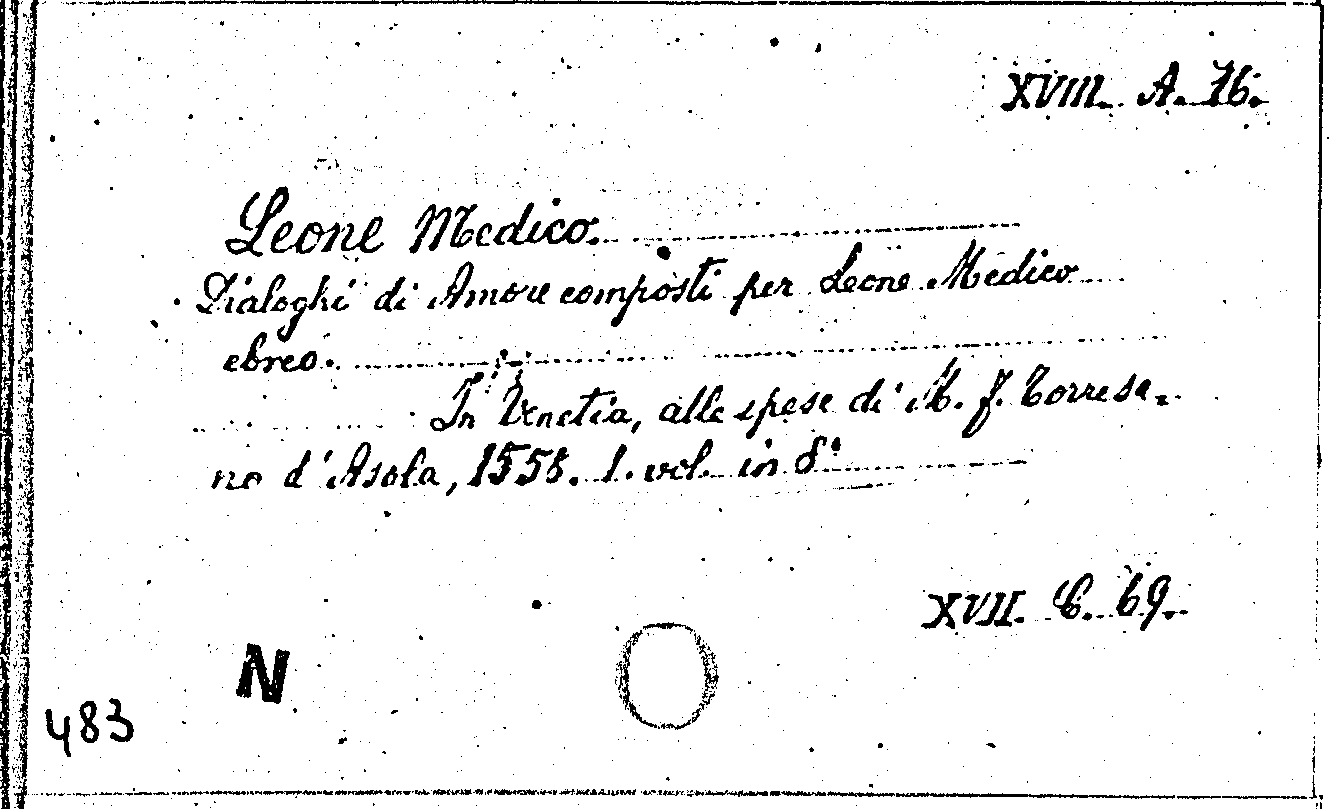 XVIII. A. 76.
Leone Medico.
Dialoghi di Amore composti per Leone Medico
ebreo.
In Venetia, alle spese di M. F. Torresa-
no d'Asola, 1558. 1. vol. in 8°
XVII. C. 69.
N
483